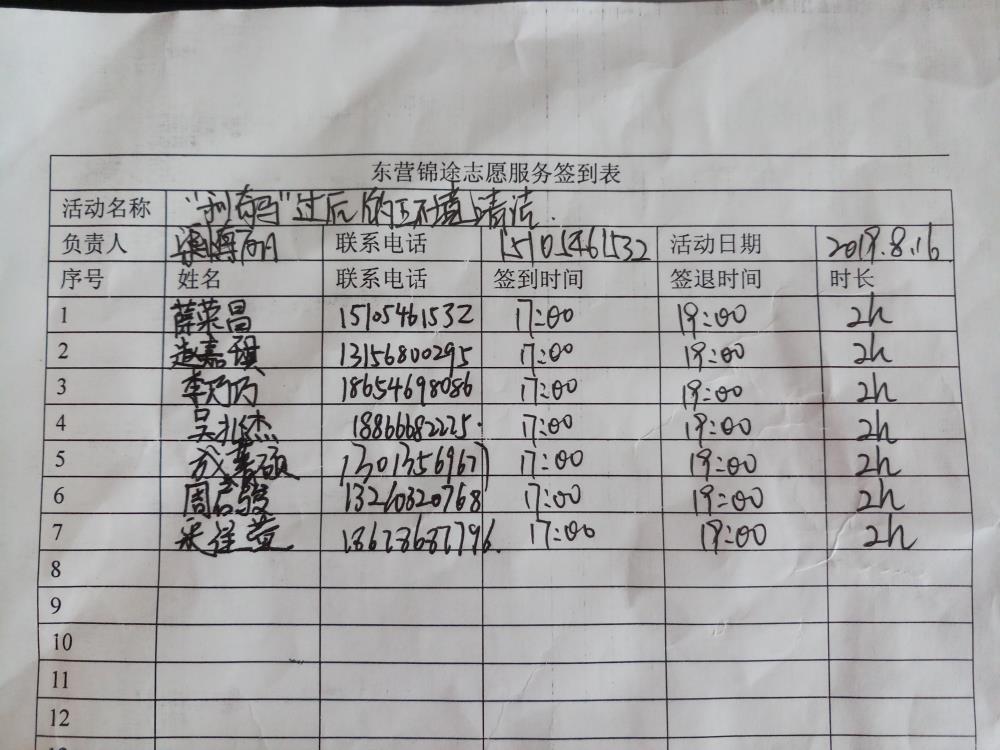 东营锦途志愿服务签到表
活动名称 "利奇马"过后的环境清洁.
负责人 联系电话 15105461532 活动日期 2019.8.16
序号 姓名 联系电话 签到时间 签退时间 时长
1 薛荣昌 15105461532 17:00 19:00 2h
2 赵嘉琪 13156800295 17:00 19:00 2h
3 李乃巧 18654698086 17:00 19:00 2h
4 吴 杰 18866682225. 17:00 19:00 2h
5 17:00 19:00 2h
6 周启骏 13260320768 17:00 19:00 2h
7 宋佳萱 17:00 19:00 2h
8
9
10
11
12